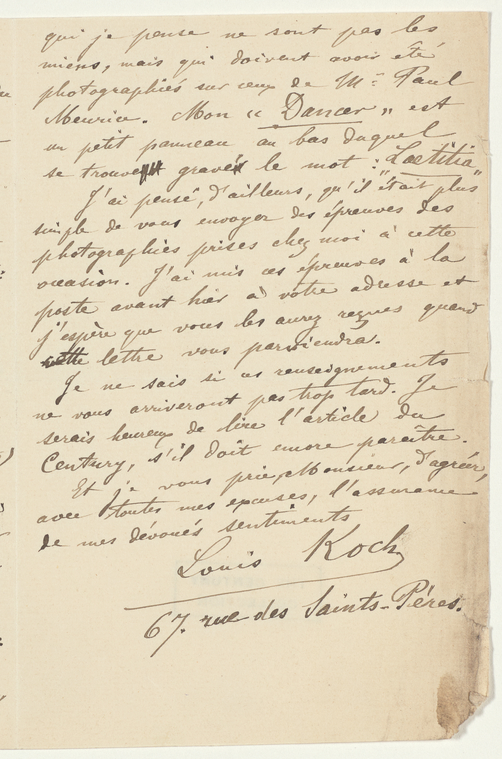 qui je pense ne sont pas les
miens, mais qui doivent avoir été
photographiés sur ceux de Mr Paul
Meurice. Mon « Dancer » est
un petit panneau au bas duquel
se trouve gravé le mot : "Lætitia"
J'ai pensé, d'ailleurs, qu'il était plus
simple de vous envoyer des épreuves des
photographies prises chez moi à cette
occasion. J'ai mis ces épreuves à la
poste avant hier à votre adresse et
j'espère que vous les aurez reçues quand
cette lettre vous parviendra.
Je ne sais si ces renseignements
ne vous arriveront pas trop tard. Je
serais heureux de lire l'article du
Century, s'il doit encore paraître.
Et je vous prie, Monsieur, d'agréer,
avec toutes mes excuses, l'assurance
de mes dévoués sentiments
Louis Koch
67. rue des Saints-Pères.